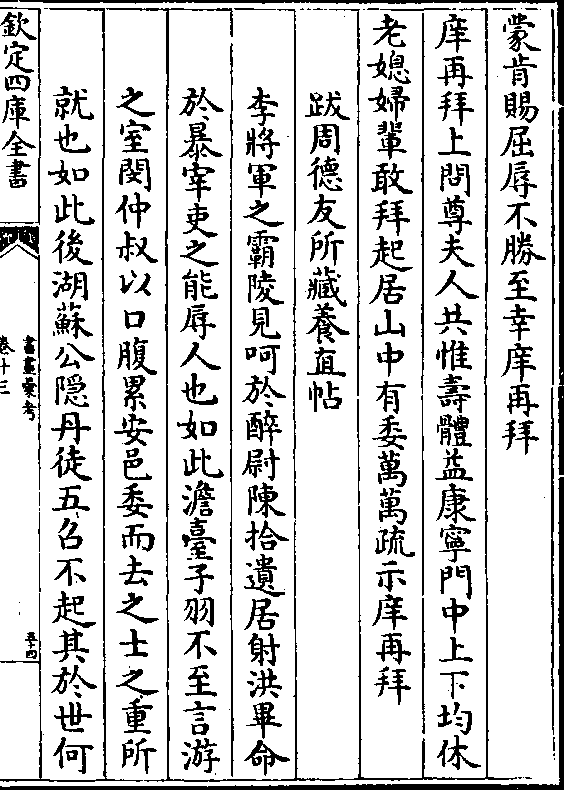 蒙肯賜屈辱不勝至幸庠再拜
庠再拜上問尊夫人共惟壽體益康寧門中上下均休
老媳婦輩敢拜起居山中有委萬萬疏示庠再拜
跋周德友所藏養直帖
李將軍之霸陵見呵於醉尉陳拾遺居射洪畢命
於暴宰吏之能辱人也如此澹臺子羽不至言游
之室閔仲叔以口腹累安邑委而去之士之重所
就也如此後湖蘇公隠丹徒五召不起其於世何
欽定四庫全書
書畫彚考
卷十三
五十四